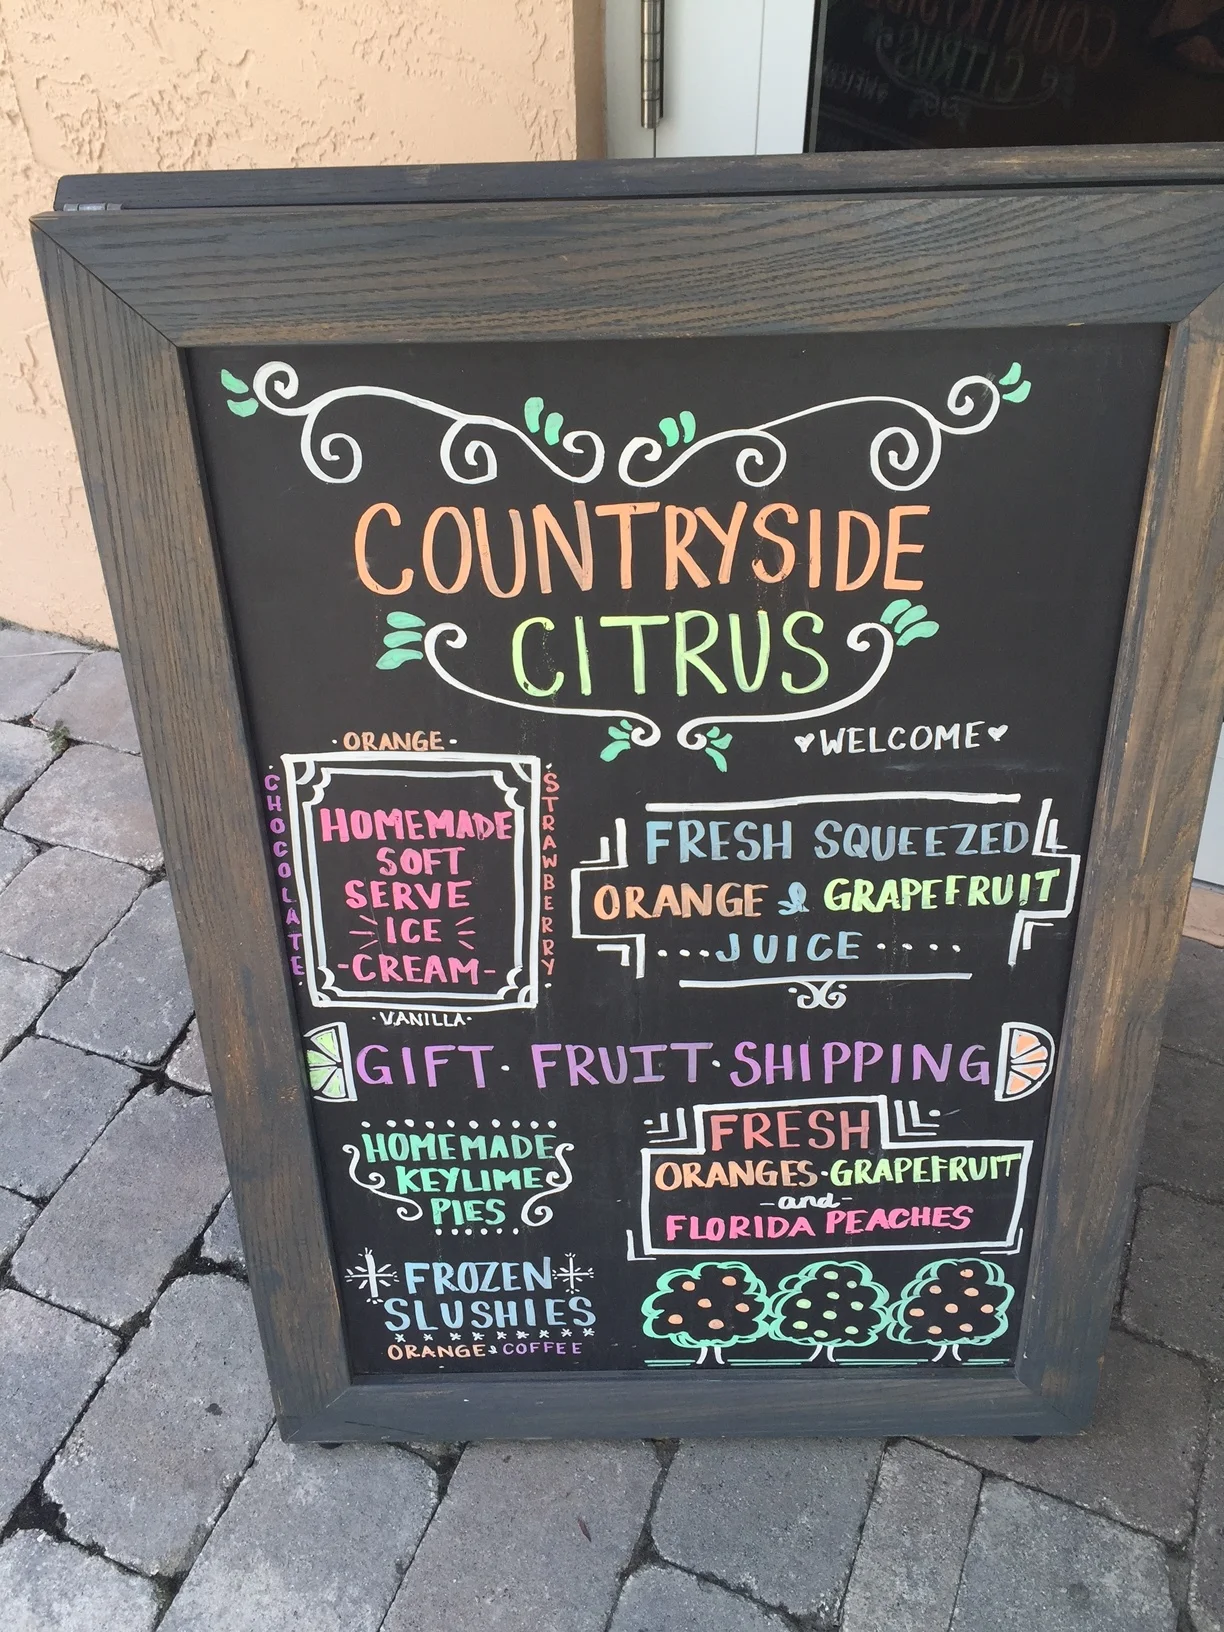 COUNTRYSIDE
CITRUS
♥WELCOME♥
·ORANGE·
·CHOCOLATE·
HOMEMADE
SOFT
SERVE
ICE
-CREAM-
·STRAWBERRY·
·VANILLA·
FRESH SQUEEZED
ORANGE & GRAPEFRUIT
...JUICE....
GIFT·FRUIT·SHIPPING
HOMEMADE
KEYLIME
PIES
FRESH
ORANGES·GRAPEFRUIT
-and-
FLORIDA PEACHES
FROZEN
SLUSHIES
ORANGE & COFFEE